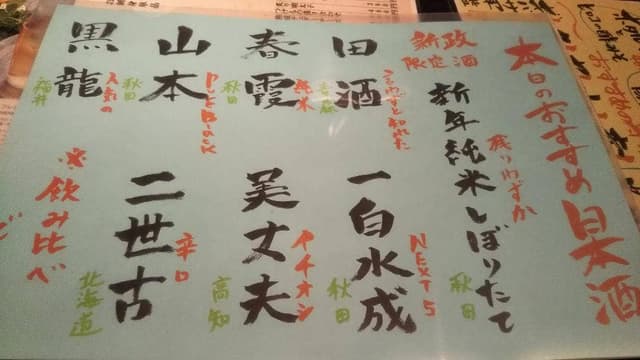 本日のおすすめ日本酒
新政
限定酒
新年純米しぼりたて
残りわずか
秋田
田酒
言わずと知れた
青森
一白水成
NEXT5
秋田
春霞
純米
秋田
美丈夫
イチオシ
高知
山本
Pure Black
秋田
二世古
辛口
北海道
黒龍
人気の
福井
※飲み比べ